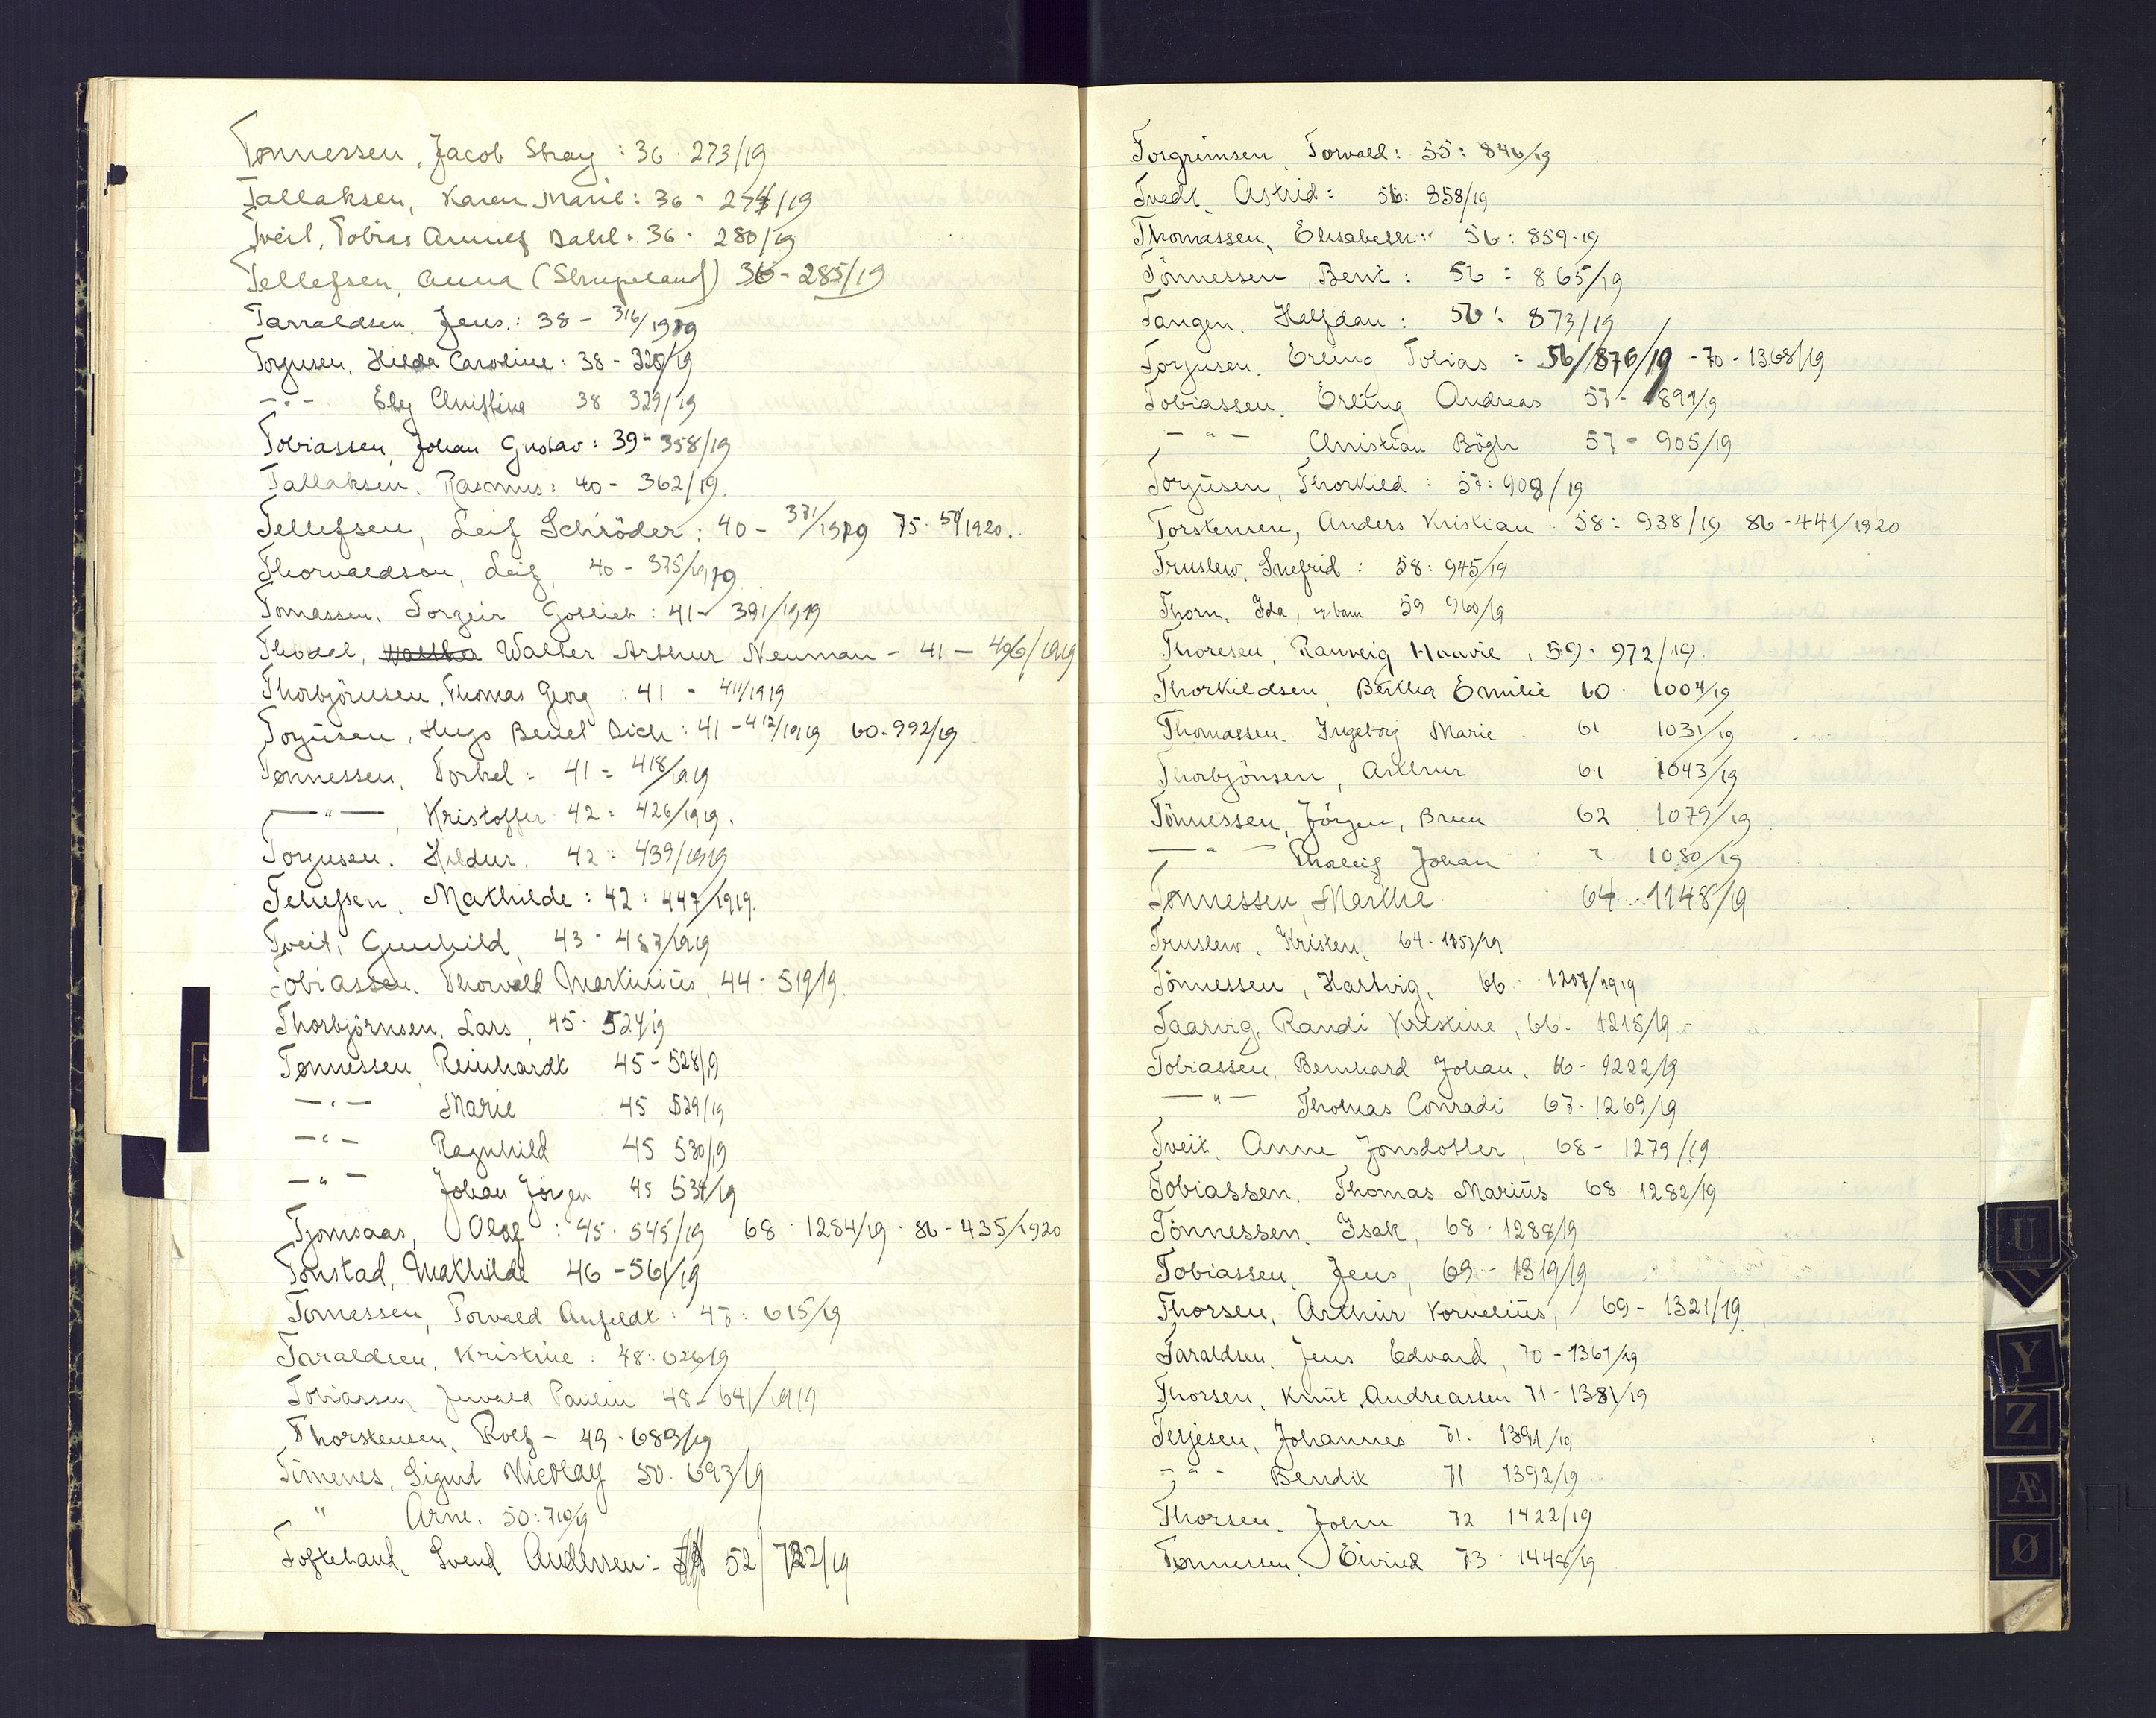 Tønnessen, Jacob Stray : 36 - 273/19
Tallaksen, Karen Marie : 36 - 274/19
Tveit, Tobias Dahl. 36 - 280/19
Tellefsen, Anna (Strupeland) 36 - 285/19
Tarraldsen, Jens.: 38 - 316/1919
Torjusen, Hilda Caroline : 38 - 328/19
- " - Christine 38 329/19
Tobiassen, Johan Gustav : 39 - 358/19
Tallaksen, Rasmus : 40 - 362/19.
Tellefsen, Leif Schröder : 40 - 371/1919 75 - /1920.
Thorvaldson, Leif, 40 - 375/1919.
Tomassen, Torgeir Gotlieb : 41 - 391/1919
Walter Arthur Neuman - 41 - 406/1919
Thorbjörnsen, Thomas Georg : 41 - 411/1919
Torjüsen, Hugo Bendel Dich : 41 - 412/1919 60 - 992/19
Tønnessen, Torkel : 41 = 418/1919
— " —, Kristoffer 42 : 426/1919.
Torjusen. Hildur. 42 : 439/1919
Tellefsen, Mathilde : 42 : 447/1919.
Tveit, Gunhild, 43 - 487/1919
Tobiassen. Thorvald Martinius, 44 - 519/19.
Thorbjörnsen, Lars, 45 - 524/19
Tønnessen, Reinhardt 45 - 528/19
- " - Marie 45 529/19
- " - Ragnhild 45 530/19
- " - Johan Jörgen 45 534/19
Tjomsaas, Olaf : 45 - 545/19 68 - 1284/19 - 86 - 435/1920
Tonstad, Mathilde 46 - 561/19
Tomassen, Torvald Anfeldt : 47 : 615/19
Taraldsen, Kristine : 48 : 626/19
Tobiassen, Paulin 48 - 641/1919
Thorstensen, Rolf - 49 - 689/19
Timenes, Sigurd Nicolay 50 - 693/19
" Arne. 50 : 710/19
Tofteland, Svend Andersen : 52/722/19
Torgrimsen, Torvald : 55 : 846/19
Tvedt, Astrid : 56 : 858/19
Thomassen, Elisabeth : 56 : 859-19
Tönnessen, Bent : 56 : 865/19
Tangen. Halfdan : 56 : 873/19
Torjusen. Erling Tobias : 56/876/19 - 70 - 1368/19
Tobiassen. Erling Andreas 57 - 891/19
— " — Christian Bögh 57 - 905/19
Torjüsen, Thorkild : 57 : 908/19
Torstensen, Anders Kristian 58 : 938/19 86 - 441/1920
Truslew, Snefrid : 58 : 945/19
Thorn, Ida, 59 960/19
Thoresen, Ranveig Haavie, 59 - 972/19.
Thorkildsen, Bertha Emilie 60 - 1004/19
Thomassen. Ingeborg Marie 61 1031/19
Thorbjönsen, Arthur 61 1043/19
Tönnessen, Jörgen, Bruu 62 1079/19
— " — Tholleif Johan " 1080/19
Tønnessen, Martha 64 1148/19
Truslew, Kristen, 64 - 1153/19
Tönnessen, Hartvig, 66 - 1207/1919
Taarvig, Randi Kristine, 66 - 1215/19
Tobiassen, Bernhard Johan, 66 - 1222/19
— " — Thomas Conradi 67 - 1269/19
Tveit, Anne Jonsdotter, 68 - 1279/19
Tobiassen, Thomas Marius 68 - 1282/19
Tönnessen, Isak, 68 - 1288/19
Tobiassen, Jens, 69 - 1319/19
Thorsen, Arthur Kornelius, 69 - 1321/19
Taraldsen, Jens Edvard, 70 - 1361/19
Thorsen, Knut Andreassen 71 - 1381/19
Terjesen, Johannes 71 - 1391/19
- " - Bendik 71 1392/19
Thorsen. John 72 1422/19
Tønnessen, Eivind 73 - 1448/19
U
Y
Z
Æ
Ø